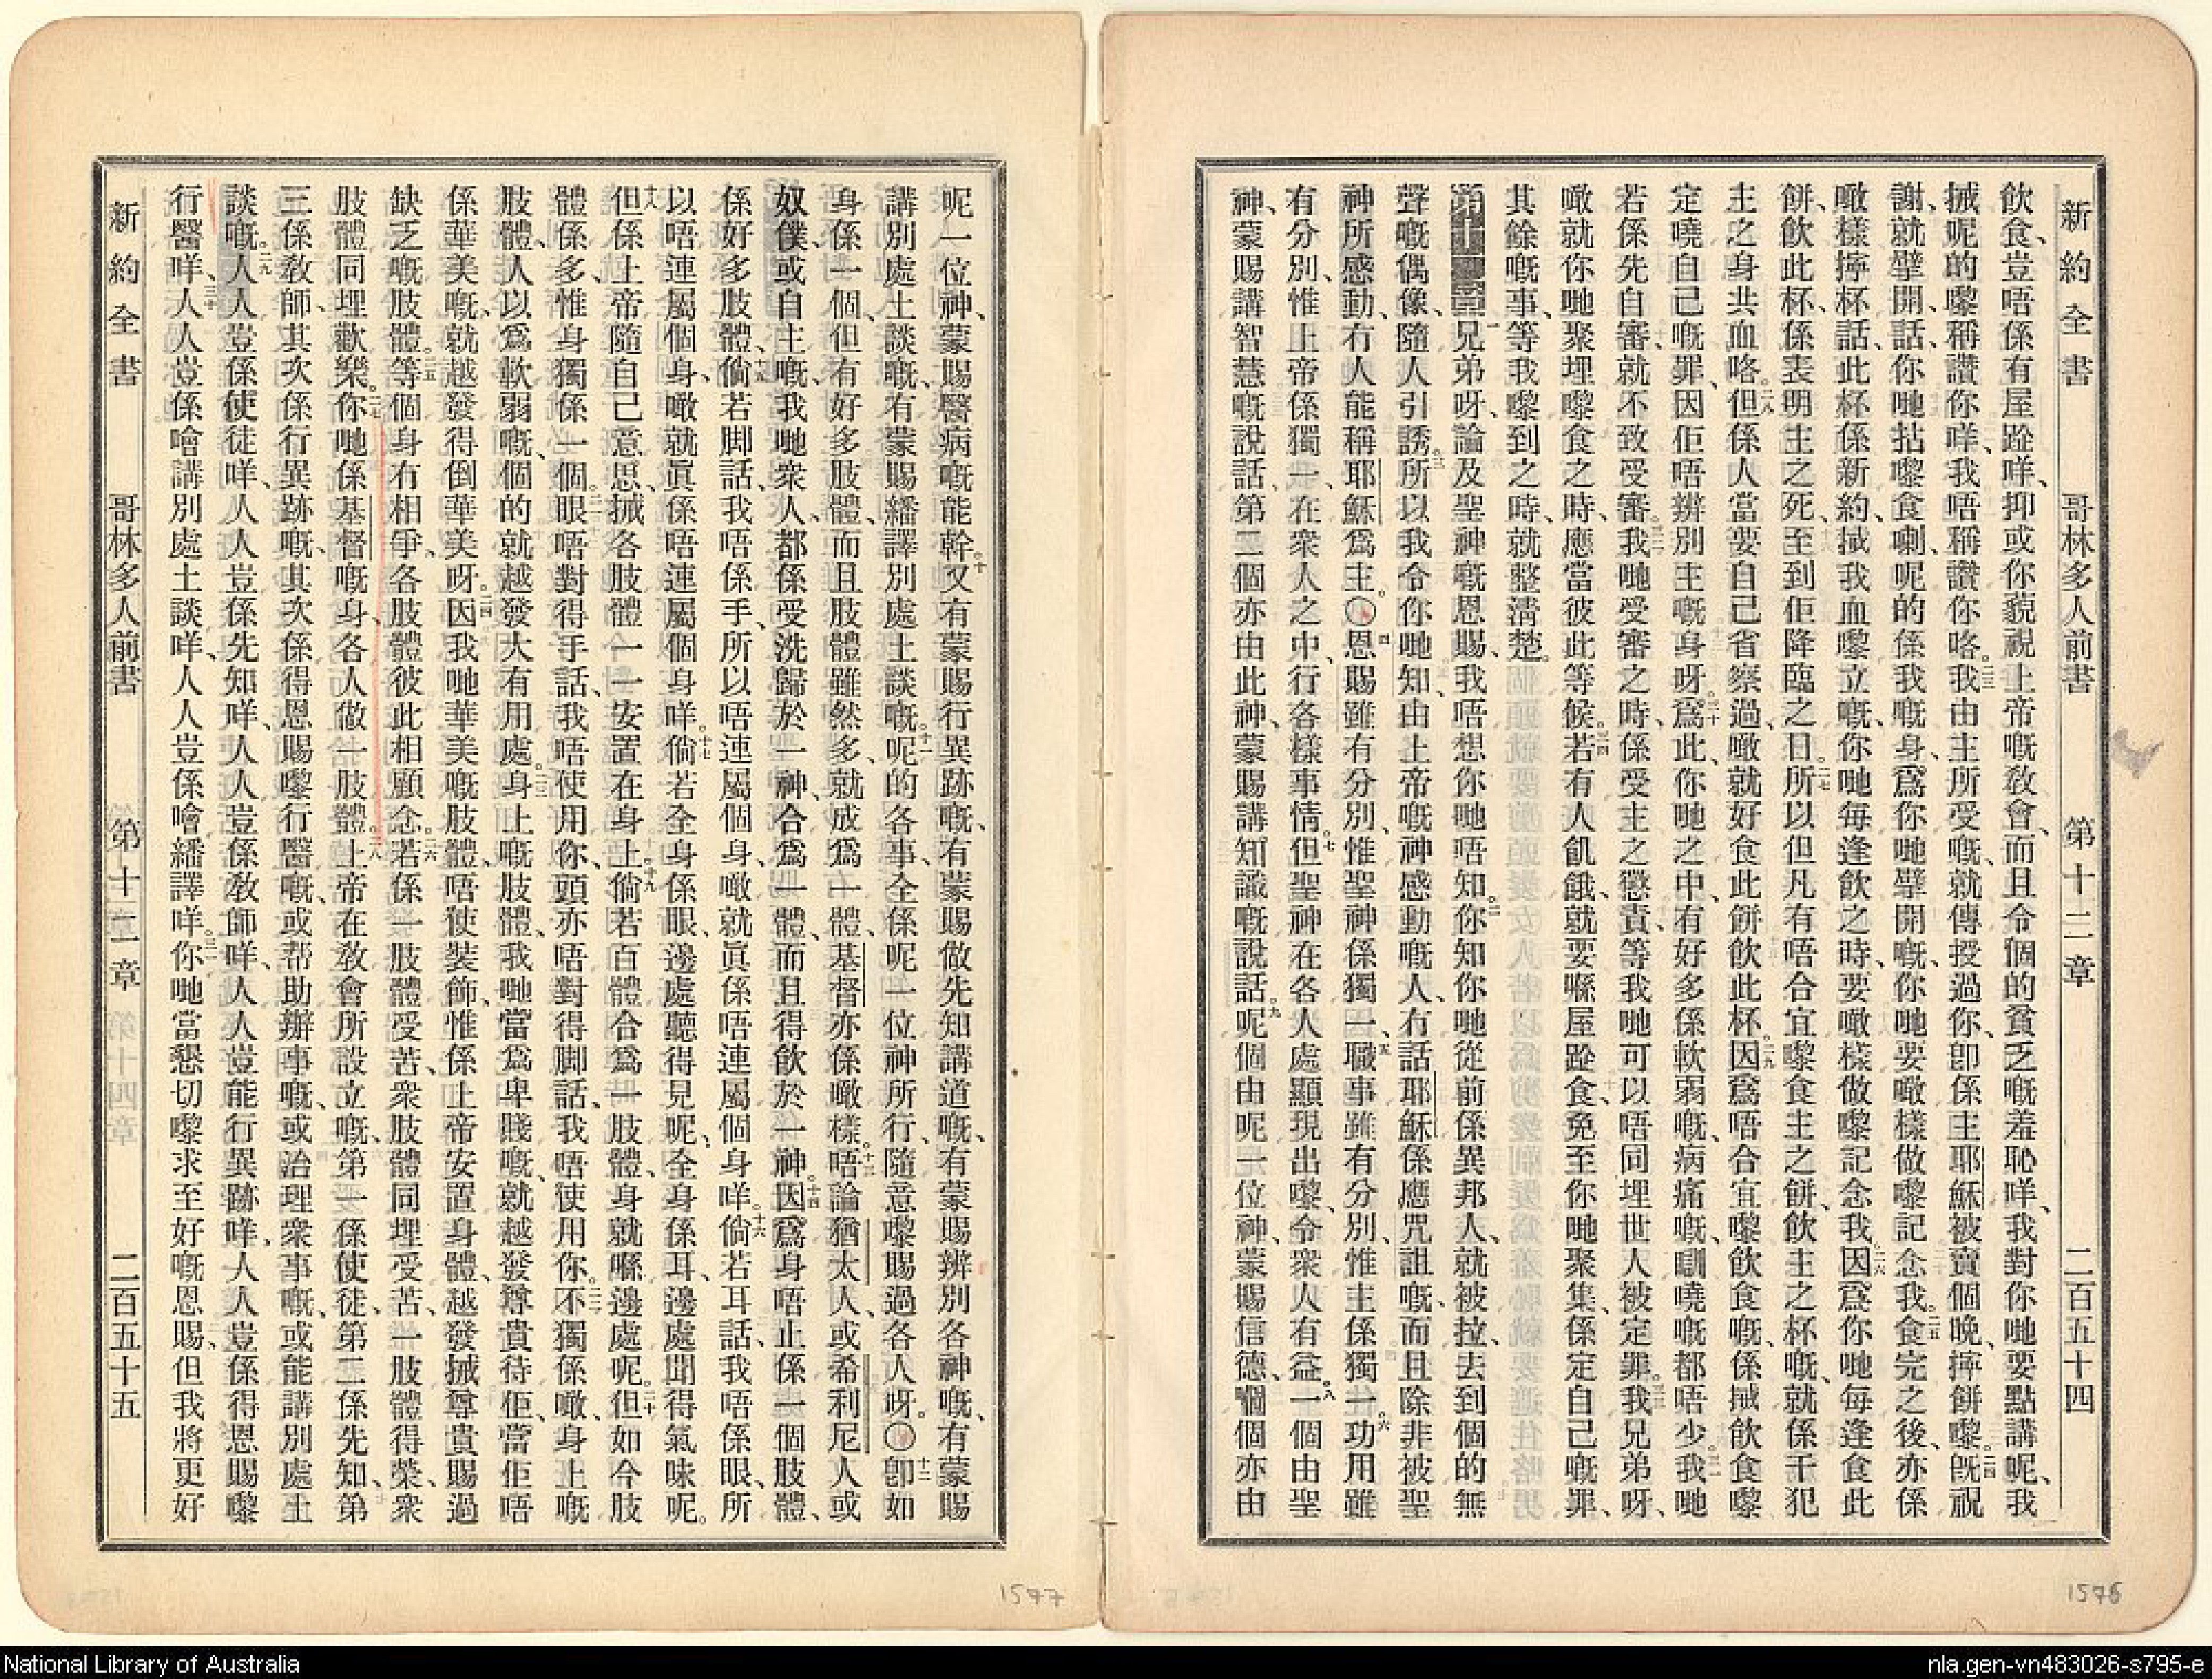 新約全書 哥林多人前書 第十二章 二百五十四
飲食、豈唔係有屋跲咩、抑或你藐視上帝嘅教會、而且令個的貧乏嘅羞恥咩、我對你哋要點講呢、我
搣呢的嚟稱讚你咩、我唔稱讚你咯。二三我由主所受嘅、就傳授過你、卽係主耶穌被賣個晚、擰餅嚟。二四旣祝
謝、就擘開、話、你哋拈嚟食喇、呢的係我嘅身、爲你哋擘開嘅、你哋要噉樣做嚟記念我。二五食完之後、亦係
噉樣擰杯、話、此杯係新約、搣我血嚟立嘅、你哋每逢飲之時、要噉樣做嚟記念我。二六因爲你哋每逢食此
餅、飲此杯、係表明主之死、至到佢降臨之日。二七所以但凡有唔合宜嚟食主之餅、飲主之杯嘅、就係干犯
主之身共血咯。二八但係人當要自己省察過、噉就好食此餅飲此杯。二九因爲唔合宜嚟飲食嘅、係搣飲食嚟
定嘵自己嘅罪、因佢唔辨別主嘅身呀。三十爲此、你哋之中、有好多係軟弱嘅、病痛嘅、瞓嘵嘅都唔少。三一我哋
若係先自審、就不致受審。三二我哋受審之時、係受主之懲責、等我哋可以唔同埋世人被定罪。三三我兄弟呀、
噉就你哋聚埋嚟食之時、應當彼此等候。三四若有人飢餓、就要喺屋跲食、免至你哋聚集、係定自己嘅罪、
其餘嘅事、等我嚟到之時、就整淸楚。
第十二章 一兄弟呀、論及聖神嘅恩賜、我唔想你哋唔知。二你知你哋從前係異邦人、就被拉去到個的無
聲嘅偶像、隨人引誘。三所以我令你哋知、由上帝嘅神感動嘅人、冇話耶穌係應咒詛嘅、而且除非被聖
神所感動、冇人能稱耶穌爲主。〇四恩賜雖有分別、惟聖神係獨一、五職事雖有分別、惟主係獨一。六功用雖
有分別、惟上帝係獨一、在衆人之中、行各樣事情。七但聖神在各人處顯現出嚟、令衆人有益。八一個由聖
神、蒙賜講智慧嘅說話、第二個亦由此神、蒙賜講知識嘅說話。九呢個由呢一位神、蒙賜信德、嗰個亦由
新約全書 哥林多人前書 第十二章 二百五十五
呢一位神、蒙賜醫病嘅能幹。十又有蒙賜行異跡嘅、有蒙賜做先知講道嘅、有蒙賜辨別各神嘅、有蒙賜
講別處土談嘅、有蒙賜繙譯別處土談嘅。十一呢的各事、全係呢一位神所行、隨意嚟賜過各人呀。〇十二卽如
身係一個、但有好多肢體、而且肢體雖然多、就成爲一體、基督亦係噉樣。十三唔論猶太人、或希利尼人或
奴僕、或自主嘅、我哋衆人、都係受洗歸於一神、合爲一體、而且得飲於一神。十四因爲身唔止係一個肢體、
係好多肢體、十五倘若脚話、我唔係手、所以唔連屬個身、噉就眞係唔連屬個身咩。十六倘若耳話、我唔係眼、所
以唔連屬個身、噉就眞係唔連屬個身咩。十七倘若全身係眼、邊處聽得見呢、全身係耳、邊處聞得氣味呢。
十八但係上帝隨自己意思、搣各肢體一一安置在身上。十九倘若百體合爲一肢體、身就喺邊處呢。二十但如今肢
體係多、惟身獨係一個。二一眼唔對得手話、我唔使用你、頭亦唔對得脚話、我唔使用你。二二不獨係噉、身上嘅
肢體、人以爲軟弱嘅、個的就越發大有用處。二三身上嘅肢體、我哋當爲卑賤嘅、就越發尊貴待佢、當佢唔
係華美嘅、就越發得倒華美呀。二四因我哋華美嘅肢體、唔使裝飾、惟係上帝安置身體、越發搣尊貴賜過
缺乏嘅肢體。二五等個身有相爭、各肢體彼此相顧念。二六若係一肢體受苦、衆肢體同埋受苦、一肢體得榮、衆
肢體同埋歡樂。二七你哋係基督嘅身、各人做一肢體。二八上帝在教會所設立嘅、第一係使徒、第二係先知、第
三係教師、其次係行異跡嘅、其次係得恩賜嚟行醫嘅、或幇助辦事嘅、或治理衆事嘅、或能講別處土
談嘅。二九人人豈係使徒咩、人人豈係先知咩、人人豈係教師咩、人人豈能行異跡咩、人人豈係得恩賜嚟
行醫咩、三十人人豈係噲講別處土談咩、人人豈係噲繙譯咩。三一你哋當懇切嚟求至好嘅恩賜、但我將更好
1577
1576
National Library of Australia
nla.gen-vn483026-s795-e